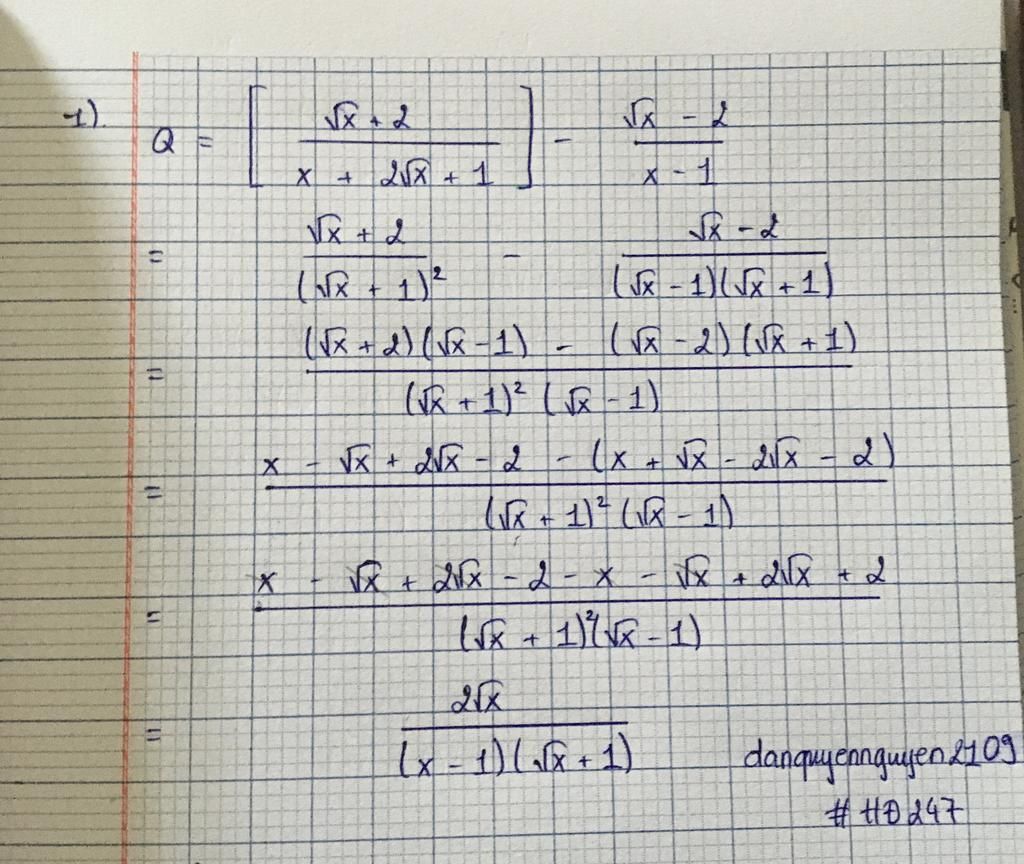 1) Q = [ (√x + 2) / (x + 2√x + 1) ] - (√x - 2) / (x - 1)
= (√x + 2) / (√x + 1)² - (√x - 2) / (√x - 1)(√x + 1)
= (√x + 2)(√x - 1) - (√x - 2)(√x + 1) / (√x + 1)² (√x - 1)
= x - √x + 2√x - 2 - (x + √x - 2√x - 2) / (√x + 1)² (√x - 1)
= x - √x + 2√x - 2 - x - √x + 2√x + 2 / (√x + 1)² (√x - 1)
= 2√x / (x - 1)(√x + 1)
danquyennguyen2109
# HĐ247